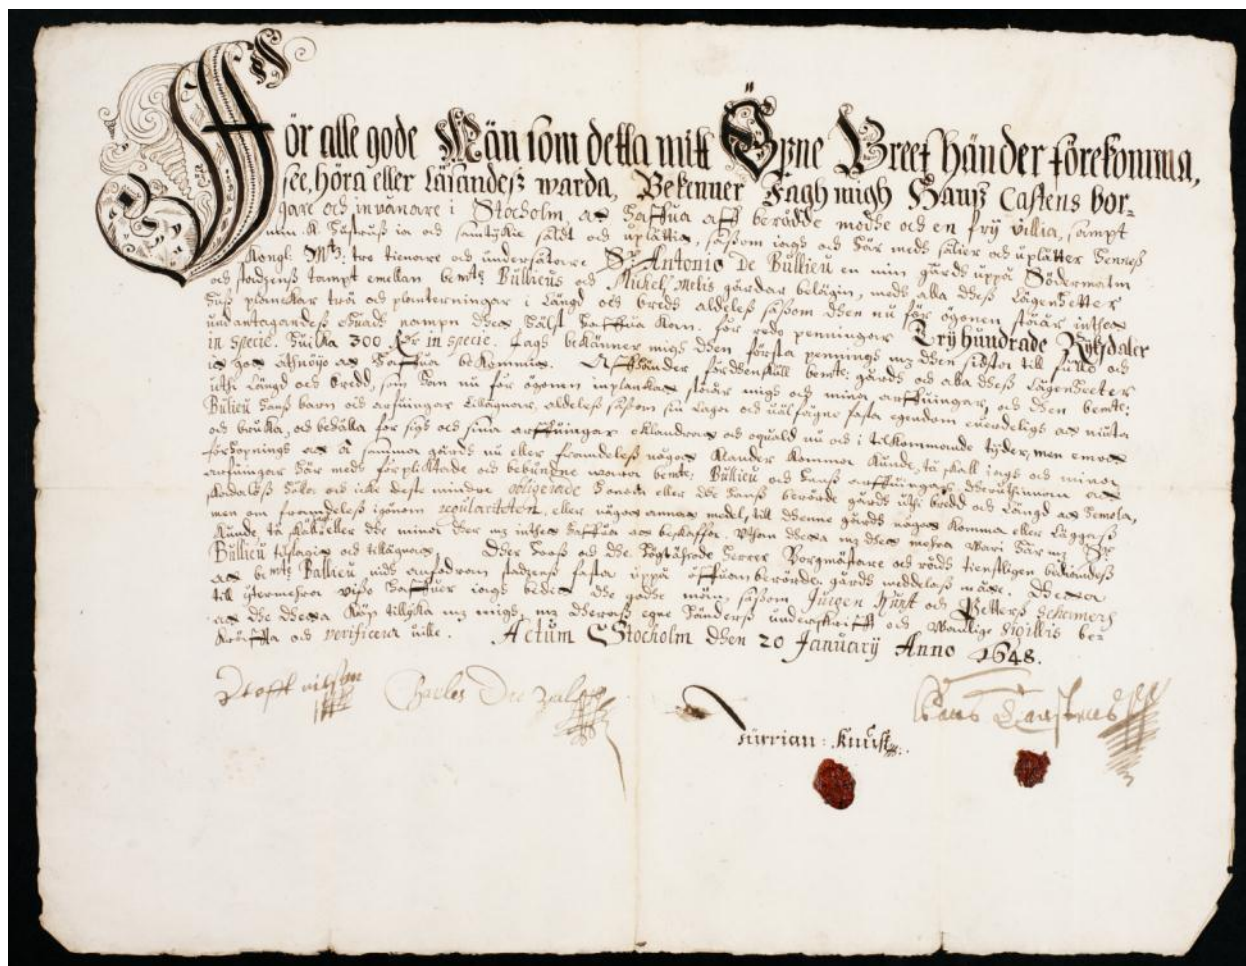 För alle gode Män som detta mitt Öpne Breef händer förekomma,
see, höra eller Läsandeß warda, Bekenner Jagh migh Hanß Castens bor-
gare och invånare i Stocholm, at haffua aff berådde modhe och en fry villia, sampt
min k. hustruß ia och samtykie såldt och uplåttit, såsom iagh och här medh sälier och uplåtter henneß
Kongl. Mtz: tro tienare och undersåtare Sr Antonio De Bullieu en min gårdh uppå Södermalm
och stadzenß tompt emellan bemte Bullieus och Michel Metis gårdar belägin, medh alla dheß Lägenheeter
huß planckar trää och planteringar i Längd och bredh aldeleß såsom dhen nu för ögonen ståår inthet
undantagandeß ehuadh nampn dhet hälst haffua kan. för rede penningar Tryhundrade Rykzdaler
in specie. huilka 300 Rdr in specie. Jagh bekänner migh dhen första penningh mz dhen sidsta till fullo och
åthnöyo at haffua bekommit. Affhänder fördhenskull bemte: gårdh och alla dheß Lägenheeter
uthi Längd och bredd, som han nu för ögonen inplanckat ståår migh och mina arffuingar, och dhen bemte:
Bulieu hanß barn och arfuingar tillägnar, aldeleß såsom sin lagh och välfågne fasta egendom euerdeligh at niuta
och bruka, och behålla för sigh och sina arffuingar oklandrat och oqualdt nu och i tilkommande tyder, men emot
förhopning at å samma gårdh nu eller framdeleß något klander komma kunde, tå skall iagh och mina
arfuingar här medh förplichtade och bebundne wara bemte: Bullieu och hanß arffuingar
skadalöß hålla och icke deste mindre obligerade honom eller dhe hanß berörde gårdh uthi bredd och Längd at hemola,
men om framdeleß igönom regulariteten, eller någon annan medel, till dhenne gårdh något komma eller Läggaß
kunde tå eller dhe mine dher mz inthet haffua at beskaffa. Uthan dhetta mz dhet mehra wari här mz Sr
Bullieu tillägnat. Dher hooß och dhe högtährade herrer Borgmästare och rådh tienstligen bediandeß
at bemte Bullieu må stadzenß fasta uppå offuanberörde gårdh meddelaß måtte. Dhetta
till ytermehra visso haffuer iagh bedet dhe gode män, såsom Jurgen Knust och Petterß Schemers
at dhe dhetta köp tillyka mz migh, mz dheraß egne händerß underskrifft och wanlige Sigillis be-
kräffta och verificera wille. Actum Stocholm dhen 20 January Anno 1648.
Charles De
Hans Carstens
Jürrian: Knust